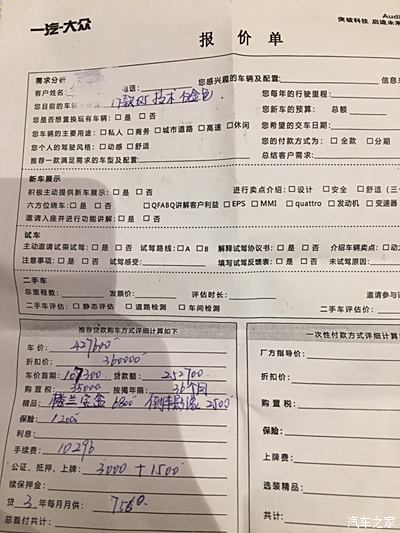 一汽-大众
Audi
突破科技 启迪未来
报 价 单
需求分析 您感兴趣的车辆及配置: 信息来
客户姓名: 电话: 您每年的行驶里程:
您目前的车辆 17款Q5 技术 您新车的预算: 总额
您是否想置换现有车辆: □是 □否 您希望的交车日期:
您车辆的主要用途: □私人 □商务 □城市道路 □高速 □休闲 您的付款方式为: □全款 □分期
您个人的驾驶风格: □动感 □舒适 总结客户需求:
推荐一款满足需求的车型及配置:
新车展示
积极主动提供新车展示: □是 □否 进行卖点介绍: □设计 □安全 □舒适(三
六方位绕车: □是 □否 □QFABQ讲解客户利益 □EPS □MMI □quattro □发动机 □变速器
邀请入座并进行功能讲解: □是 □否
试车
主动邀请试乘试驾: □是 □否 试驾路线: □A □B 解释试驾协议书: □是 □否 介绍车辆卖点: □动
注意事项: □是 □否 试驾感受: 填写试驾反馈表: □是 □否 未试驾原因:
二手车
总里程数: 发票价: 评估时长: 邀请参与
二手车评估: □静态评估 □道路检测 □车间检测 二手车评估价:
推荐贷款购车方式详细计算如下
车价: 427600
折扣价: 360000
车价首期: 107300 贷款额: 252700
购置税: 35000 按揭年限: 36个月
精品: 6800 倒车影像 2500
保险: 1200
利息:
手续费: 10296
公证、抵押、上牌: 3000 + 1500
续保押金:
贷 3 年每月月供: 7560
总首付共计:
一次性付款方式详细计算
厂方指导价:
折扣价:
购置税:
保险:
上牌费:
选装精品:
共计:
汽车之家